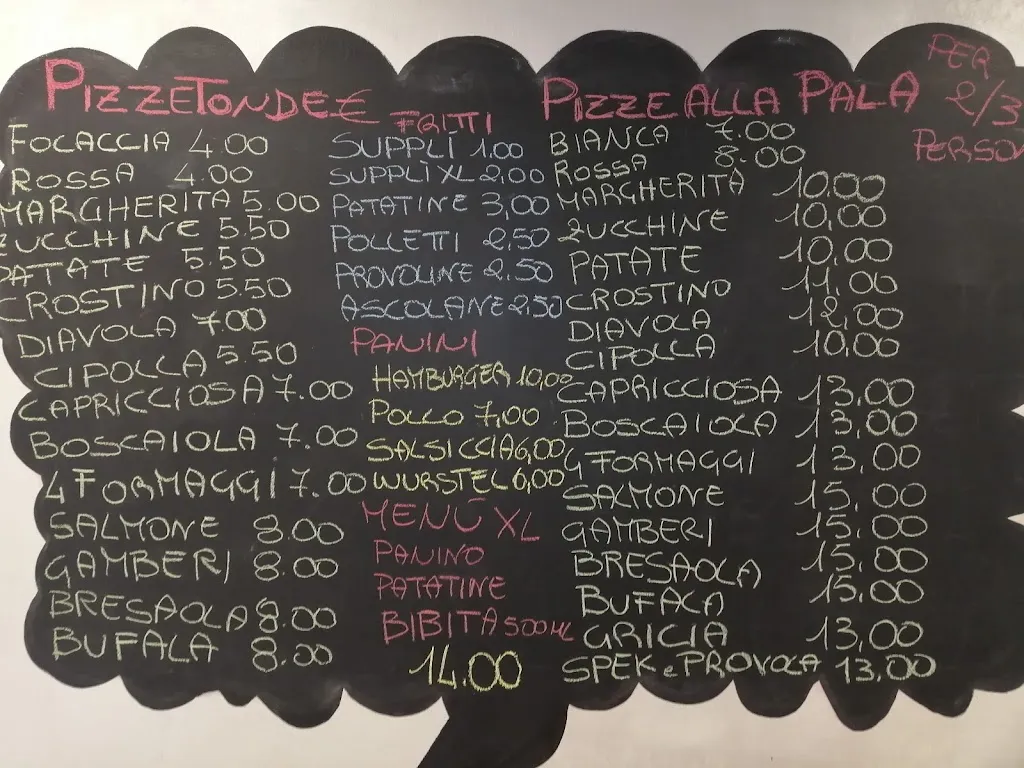 PIZZE TONDE €
FOCACCIA 4.00
ROSSA 4.00
MARGHERITA 5.00
ZUCCHINE 5.50
PATATE 5.50
CROSTINO 5.50
DIAVOLA 7.00
CIPOLLA 5.50
CAPRICCIOSA 7.00
BOSCAIOLA 7.00
4 FORMAGGI 7.00
SALMONE 8.00
GAMBERI 8.00
BRESAOLA 8.00
BUFALA 8.00
FRITTI
SUPPLÌ 1.00
SUPPLÌ XL 2,00
PATATINE 3,00
POLLETTI 2,50
PROVOLINE 2.50
ASCOLANE 2,50
PANINI
HAMBURGER 10,00
POLLO 7,00
SALSICCIA 6,00
WURSTEL 6,00
MENÙ XL
PANINO
PATATINE
BIBITA 500ML
14.00
PIZZE ALLA PALA
PER
2/3
PERSON
BIANCA 7.00
ROSSA 8.00
MARGHERITA 10,00
ZUCCHINE 10,00
PATATE 10,00
CROSTINO 11,00
DIAVOLA 12,00
CIPOLLA 10,00
CAPRICCIOSA 13,00
BOSCAIOLA 13,00
4 FORMAGGI 13,00
SALMONE 15,00
GAMBERI 15,00
BRESAOLA 15,00
BUFALA 15,00
GRICIA 13,00
SPEK e PROVOLA 13,00